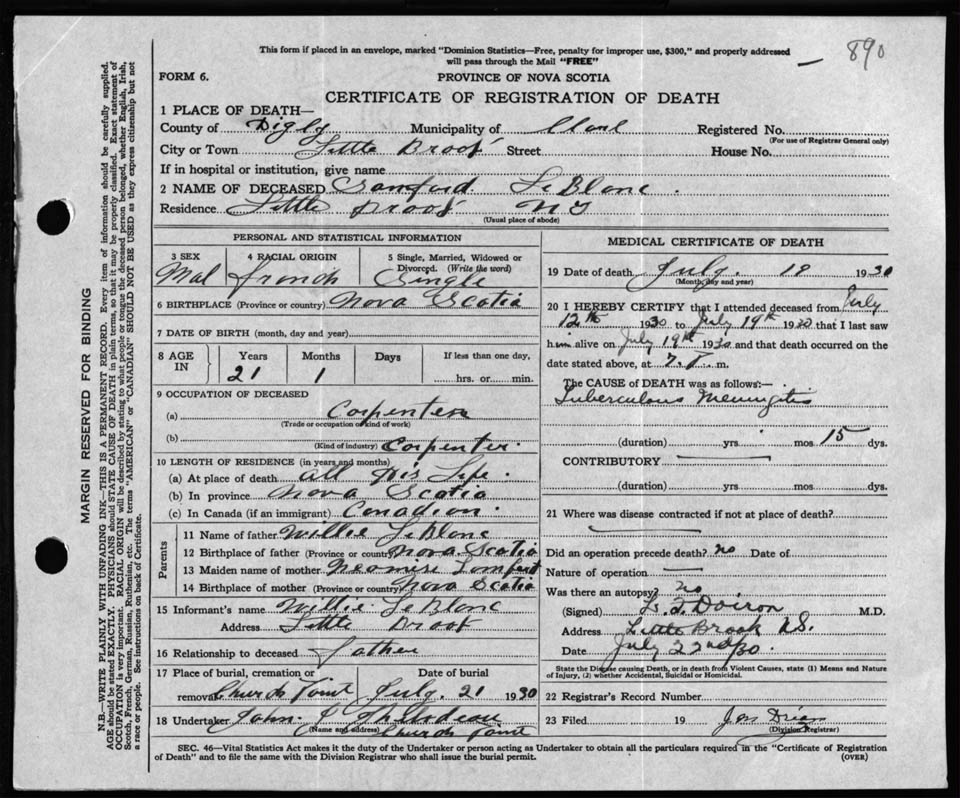 890
This form if placed in an envelope, marked "Dominion Statistics—Free, penalty for improper use, $300," and properly addressed
will pass through the Mail "FREE"
FORM 6.
PROVINCE OF NOVA SCOTIA
CERTIFICATE OF REGISTRATION OF DEATH
1 PLACE OF DEATH—
County of Digby Municipality of Clare Registered No.
(For use of Registrar General only)
City or Town Little Brook Street House No.
If in hospital or institution, give name
2 NAME OF DECEASED LeBlanc
Residence Little Brook N S
(Usual place of abode)
PERSONAL AND STATISTICAL INFORMATION
3 SEX 4 RACIAL ORIGIN 5 Single, Married, Widowed or
Divorced. (Write the word)
Mal french Single
6 BIRTHPLACE (Province or country) Nova Scotia
7 DATE OF BIRTH (month, day and year)
8 AGE IN Years Months Days If less than one day,
21 1 hrs. or min.
9 OCCUPATION OF DECEASED
(a) Carpenter
(Trade or occupation or kind of work)
(b) Carpenter
(Kind of industry)
10 LENGTH OF RESIDENCE (in years and months)
(a) At place of death all his Life
(b) In province Nova Scotia
(c) In Canada (if an immigrant) Canadian
Parents
11 Name of father Willie LeBlanc
12 Birthplace of father (Province or country) Nova Scotia
13 Maiden name of mother
14 Birthplace of mother (Province or country) Nova Scotia
15 Informant's name Willie LeBlanc
Address Little Brook
16 Relationship to deceased father
17 Place of burial, cremation or Date of burial
removal Church Point July 21 1930
18 Undertaker John Thibodeau
(Name and address) Church Point
MEDICAL CERTIFICATE OF DEATH
19 Date of death July 19 1930
(Month, day and year)
20 I HEREBY CERTIFY that I attended deceased from July
12th 1930 to July 19th 1930 that I last saw
him alive on July 19th 1930 and that death occurred on the
date stated above, at 7. P. m.
The CAUSE of DEATH was as follows:—
Tuberculous Meningitis
(duration) yrs mos 15 dys.
CONTRIBUTORY
(duration) yrs. mos. dys.
21 Where was disease contracted if not at place of death?
Did an operation precede death? no Date of
Nature of operation
Was there an autopsy? no
(Signed) Doiron M.D.
Address Little Brook N.S.
Date July 22nd/30
State the Disease causing Death, or in death from Violent Causes, state (1) Means and Nature
of Injury, (2) whether Accidental, Suicidal or Homicidal.
22 Registrar's Record Number
23 Filed 19
(Division Registrar)
SEC. 46—Vital Statistics Act makes it the duty of the Undertaker or person acting as Undertaker to obtain all the particulars required in the "Certificate of Registration
of Death" and to file the same with the Division Registrar who shall issue the burial permit.
(OVER)
MARGIN RESERVED FOR BINDING
N.B.—WRITE PLAINLY WITH UNFADING INK—THIS IS A PERMANENT RECORD. Every item of information should be carefully supplied.
AGE should be stated EXACTLY. PHYSICIANS should STATE CAUSE OF DEATH in plain terms, so that it may be properly classified. Exact statement of
OCCUPATION is very important. RACIAL ORIGIN will be described by stating to what people or tongue the deceased person belonged, whether English, Irish,
Scotch, French, German, Russian, Ruthenian, etc. The terms "AMERICAN" or "CANADIAN" SHOULD NOT BE USED as they express citizenship but not
a race or people. See instructions on back of Certificate.